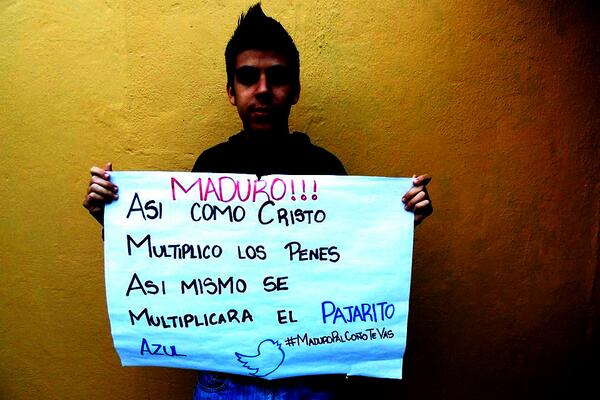 MADURO!!!
ASI COMO CRISTO
MULTIPLICO LOS PENES
ASI MISMO SE
MULTIPLICARA EL PAJARITO
AZUL #MADUROPALCOÑOTEVAS